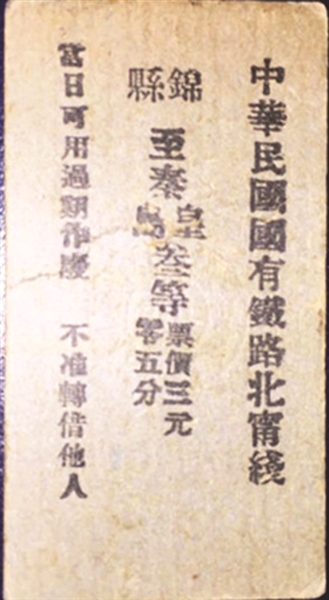 中華民國國有鐵路北甯綫
錦縣
至秦皇島叁等
票價三元零五分
當日可用過期作廢 不准轉借他人